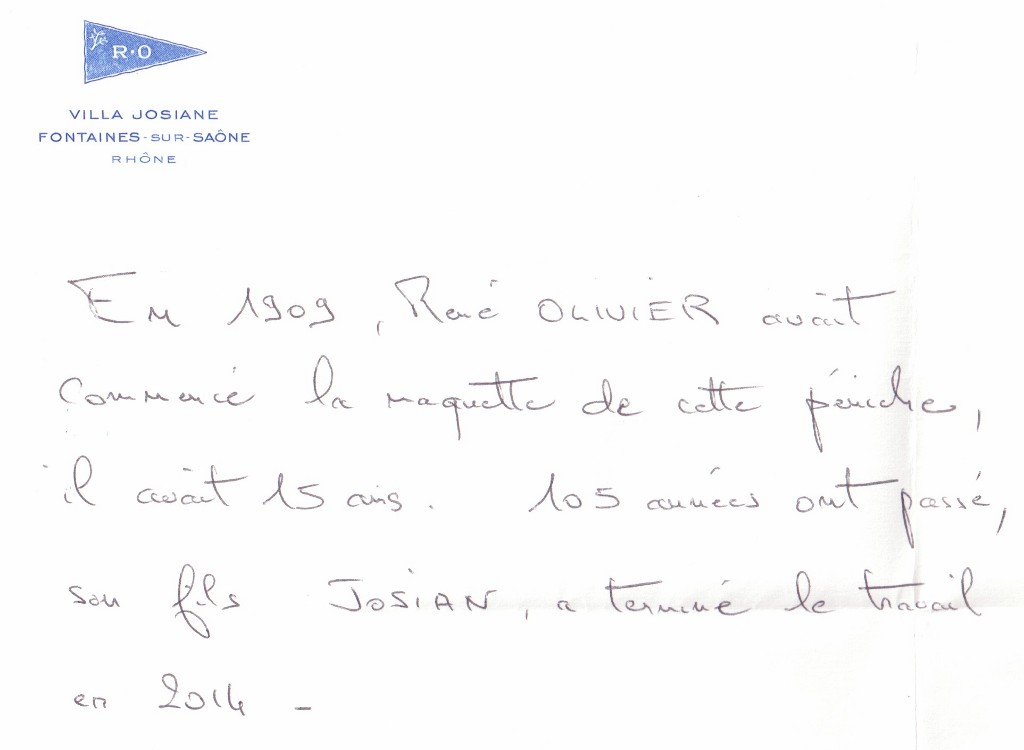 R·O
VILLA JOSIANE
FONTAINES-SUR-SAÔNE
RHÔNE
En 1909, René OLIVIER avait
commencé la maquette de cette péniche,
il avait 15 ans. 105 années ont passé,
son fils JOSIAN, a terminé le travail
en 2014 -